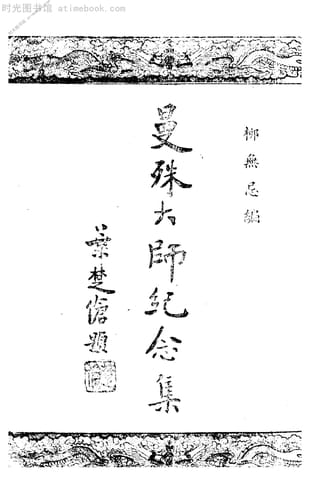 时光图书馆 atimebook.com
柳無忌編
曼殊大師紀念集
葉楚傖題